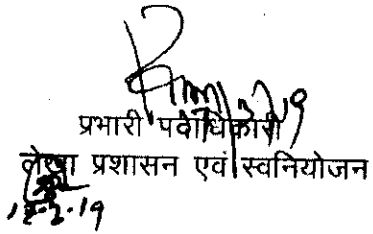 प्रभारी पदाधिकारी
लेखा प्रशासन एवं स्वनियोजन
12.2.19